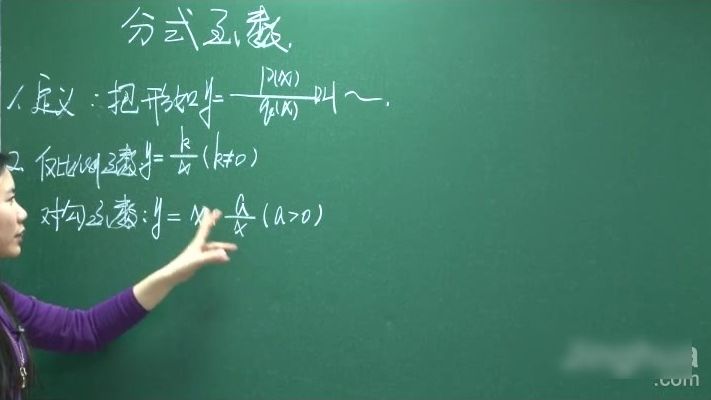 分式函数.
1.定义:把形如y=p(x)/q(x)叫~.
2.反比例函数y=k/x(k≠0)
对勾函数:y=x+a/x(a>0)
.com